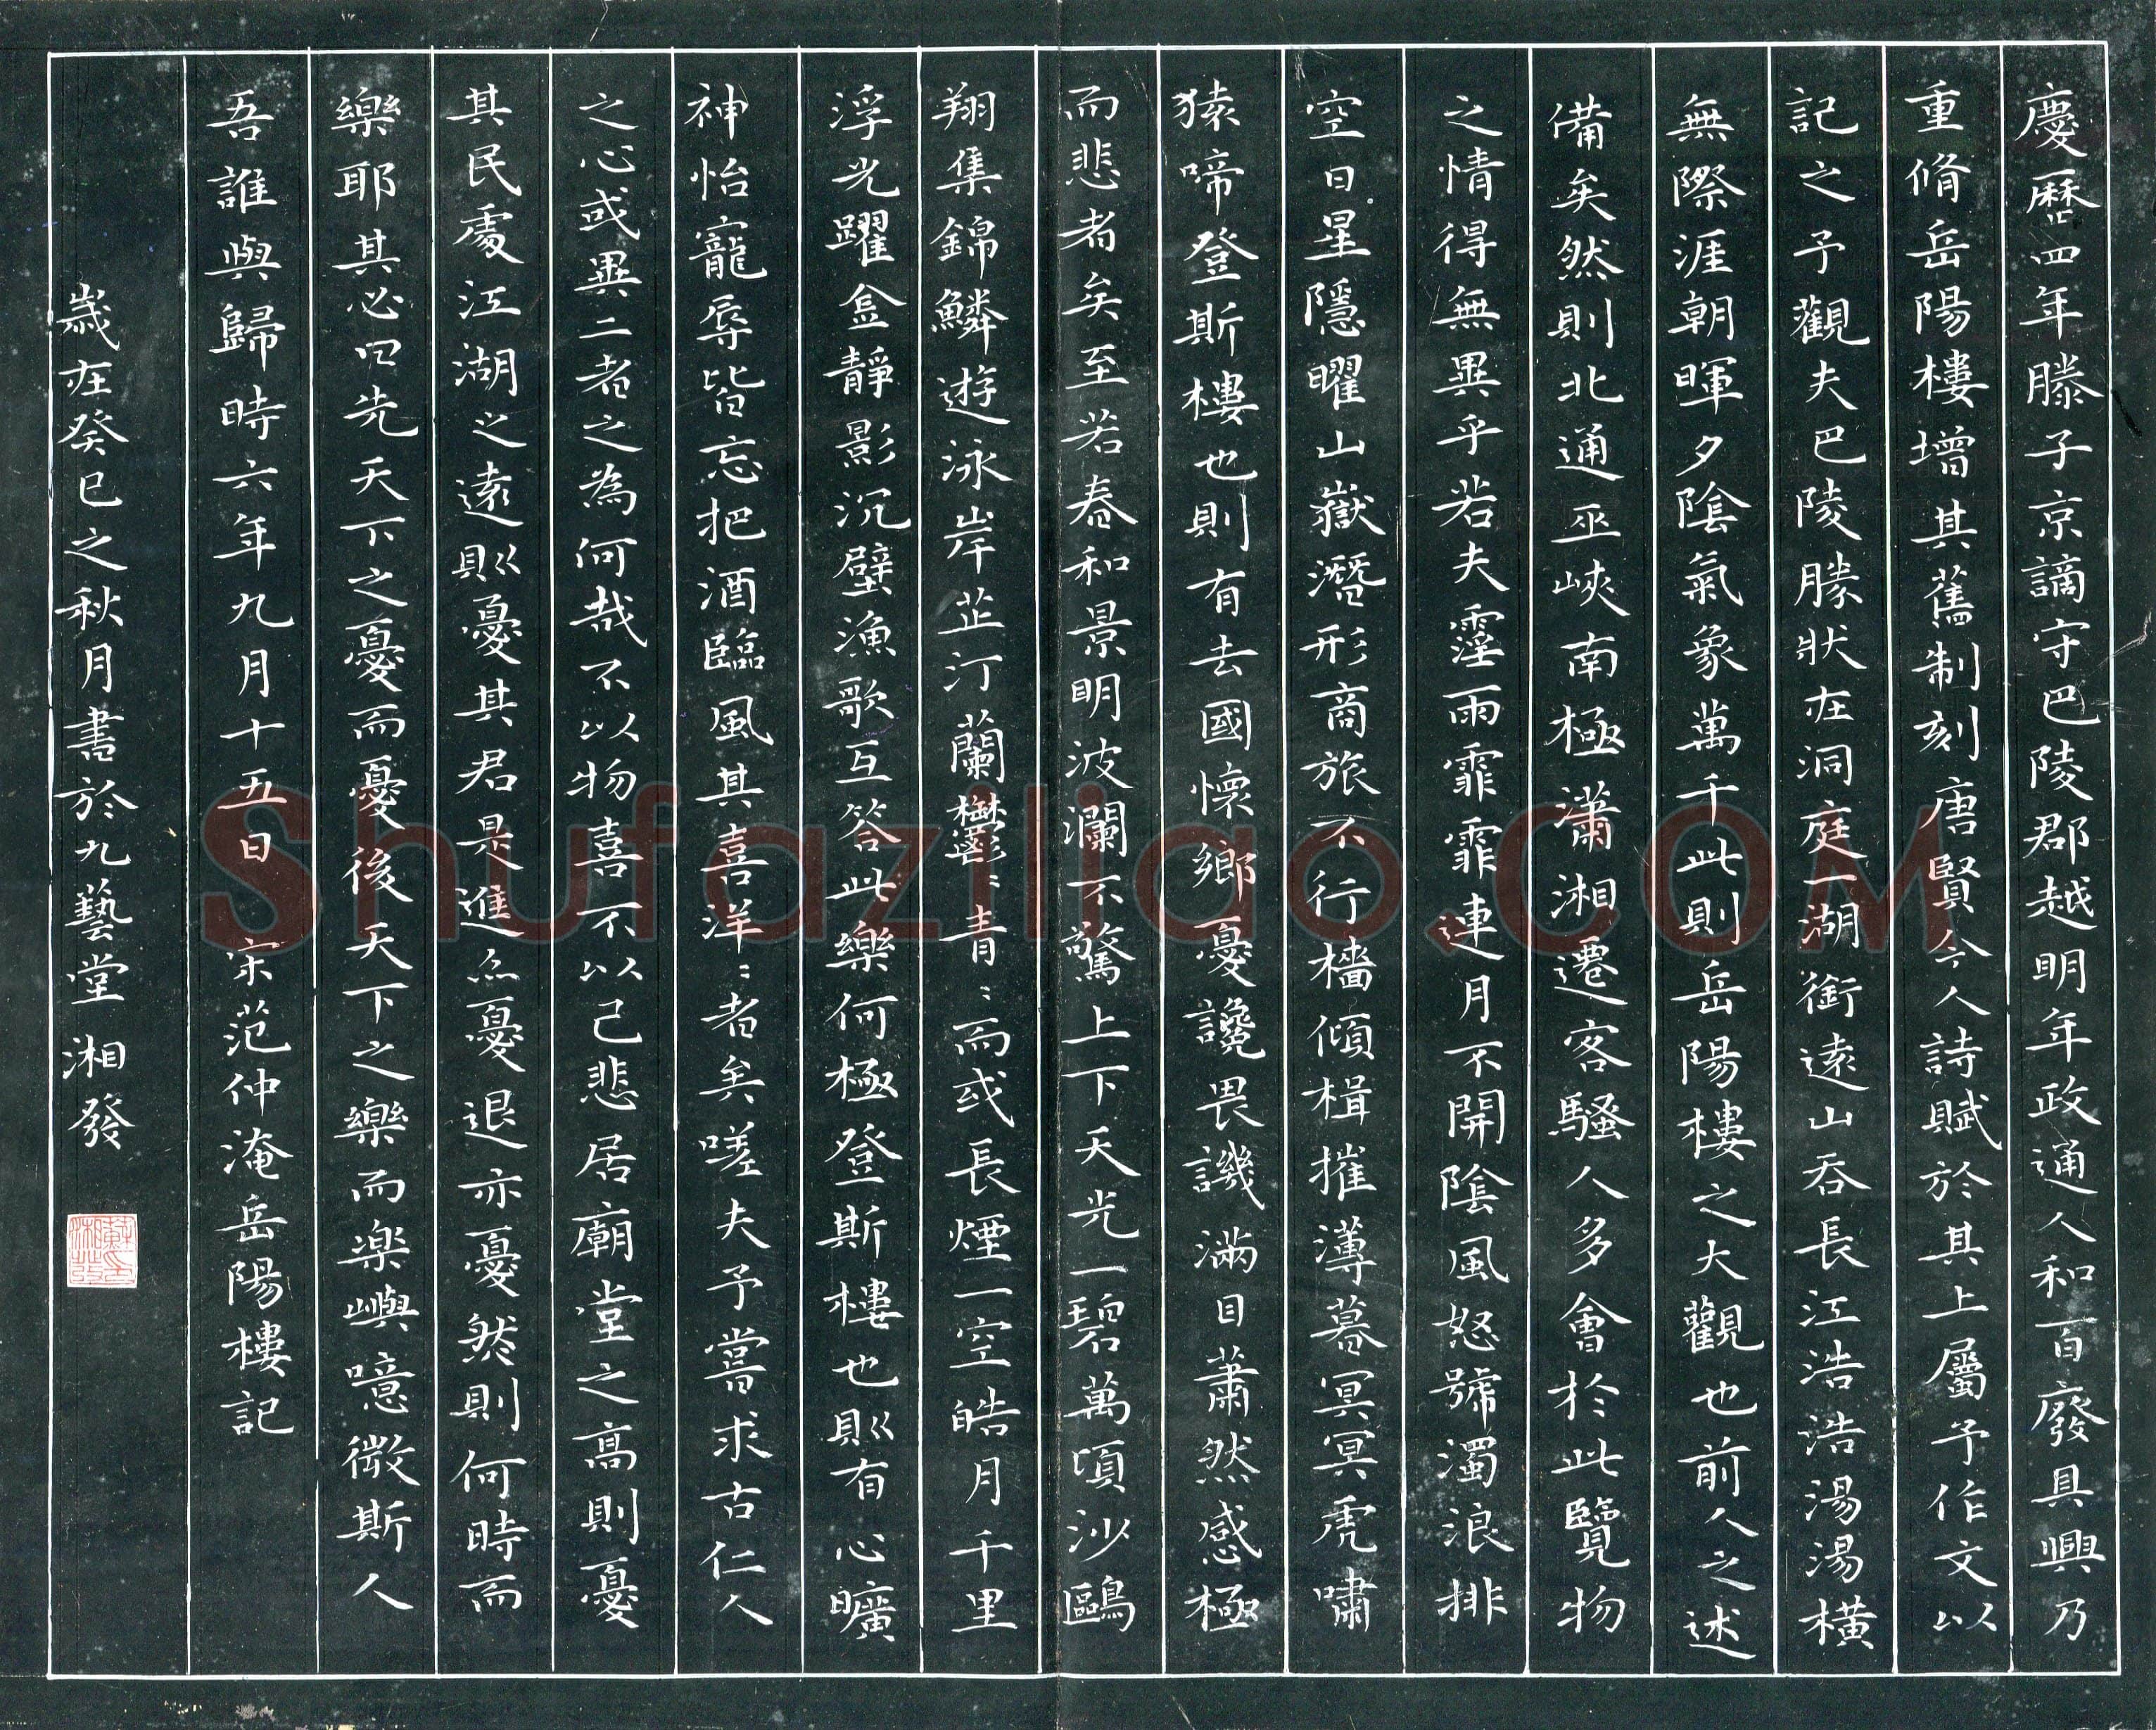 慶曆四年滕子京謫守巴陵郡越明年政通人和百廢具興乃
重脩岳陽樓增其舊制刻唐賢今人詩賦於其上屬予作文以
記之予觀夫巴陵勝狀在洞庭一湖銜遠山吞長江浩浩湯湯橫
無際涯朝暉夕陰氣象萬千此則岳陽樓之大觀也前人之述
備矣然則北通巫峽南極瀟湘遷客騷人多會於此覽物
之情得無異乎若夫霪雨霏霏連月不開陰風怒號濁浪排
空日星隱曜山嶽潛形商旅不行檣傾楫摧薄暮冥冥虎嘯
猿啼登斯樓也則有去國懷鄉憂讒畏譏滿目蕭然感極
而悲者矣至若春和景明波瀾不驚上下天光一碧萬頃沙鷗
翔集錦鱗遊泳岸芷汀蘭鬱〻青〻而或長煙一空皓月千里
浮光躍金靜影沉璧漁歌互答此樂何極登斯樓也則有心曠
神怡寵辱皆忘把酒臨風其喜洋〻者矣嗟夫予嘗求古仁人
之心或異二者之為何哉不以物喜不以己悲居廟堂之高則憂
其民處江湖之遠則憂其君是進亦憂退亦憂然則何時而
樂耶其必曰先天下之憂而憂後天下之樂而樂嶼噫微斯人
吾誰與歸時六年九月十五日 宋范仲淹岳陽樓記
歲在癸巳之秋月書於九藝堂湘發
Shufaziliao.com